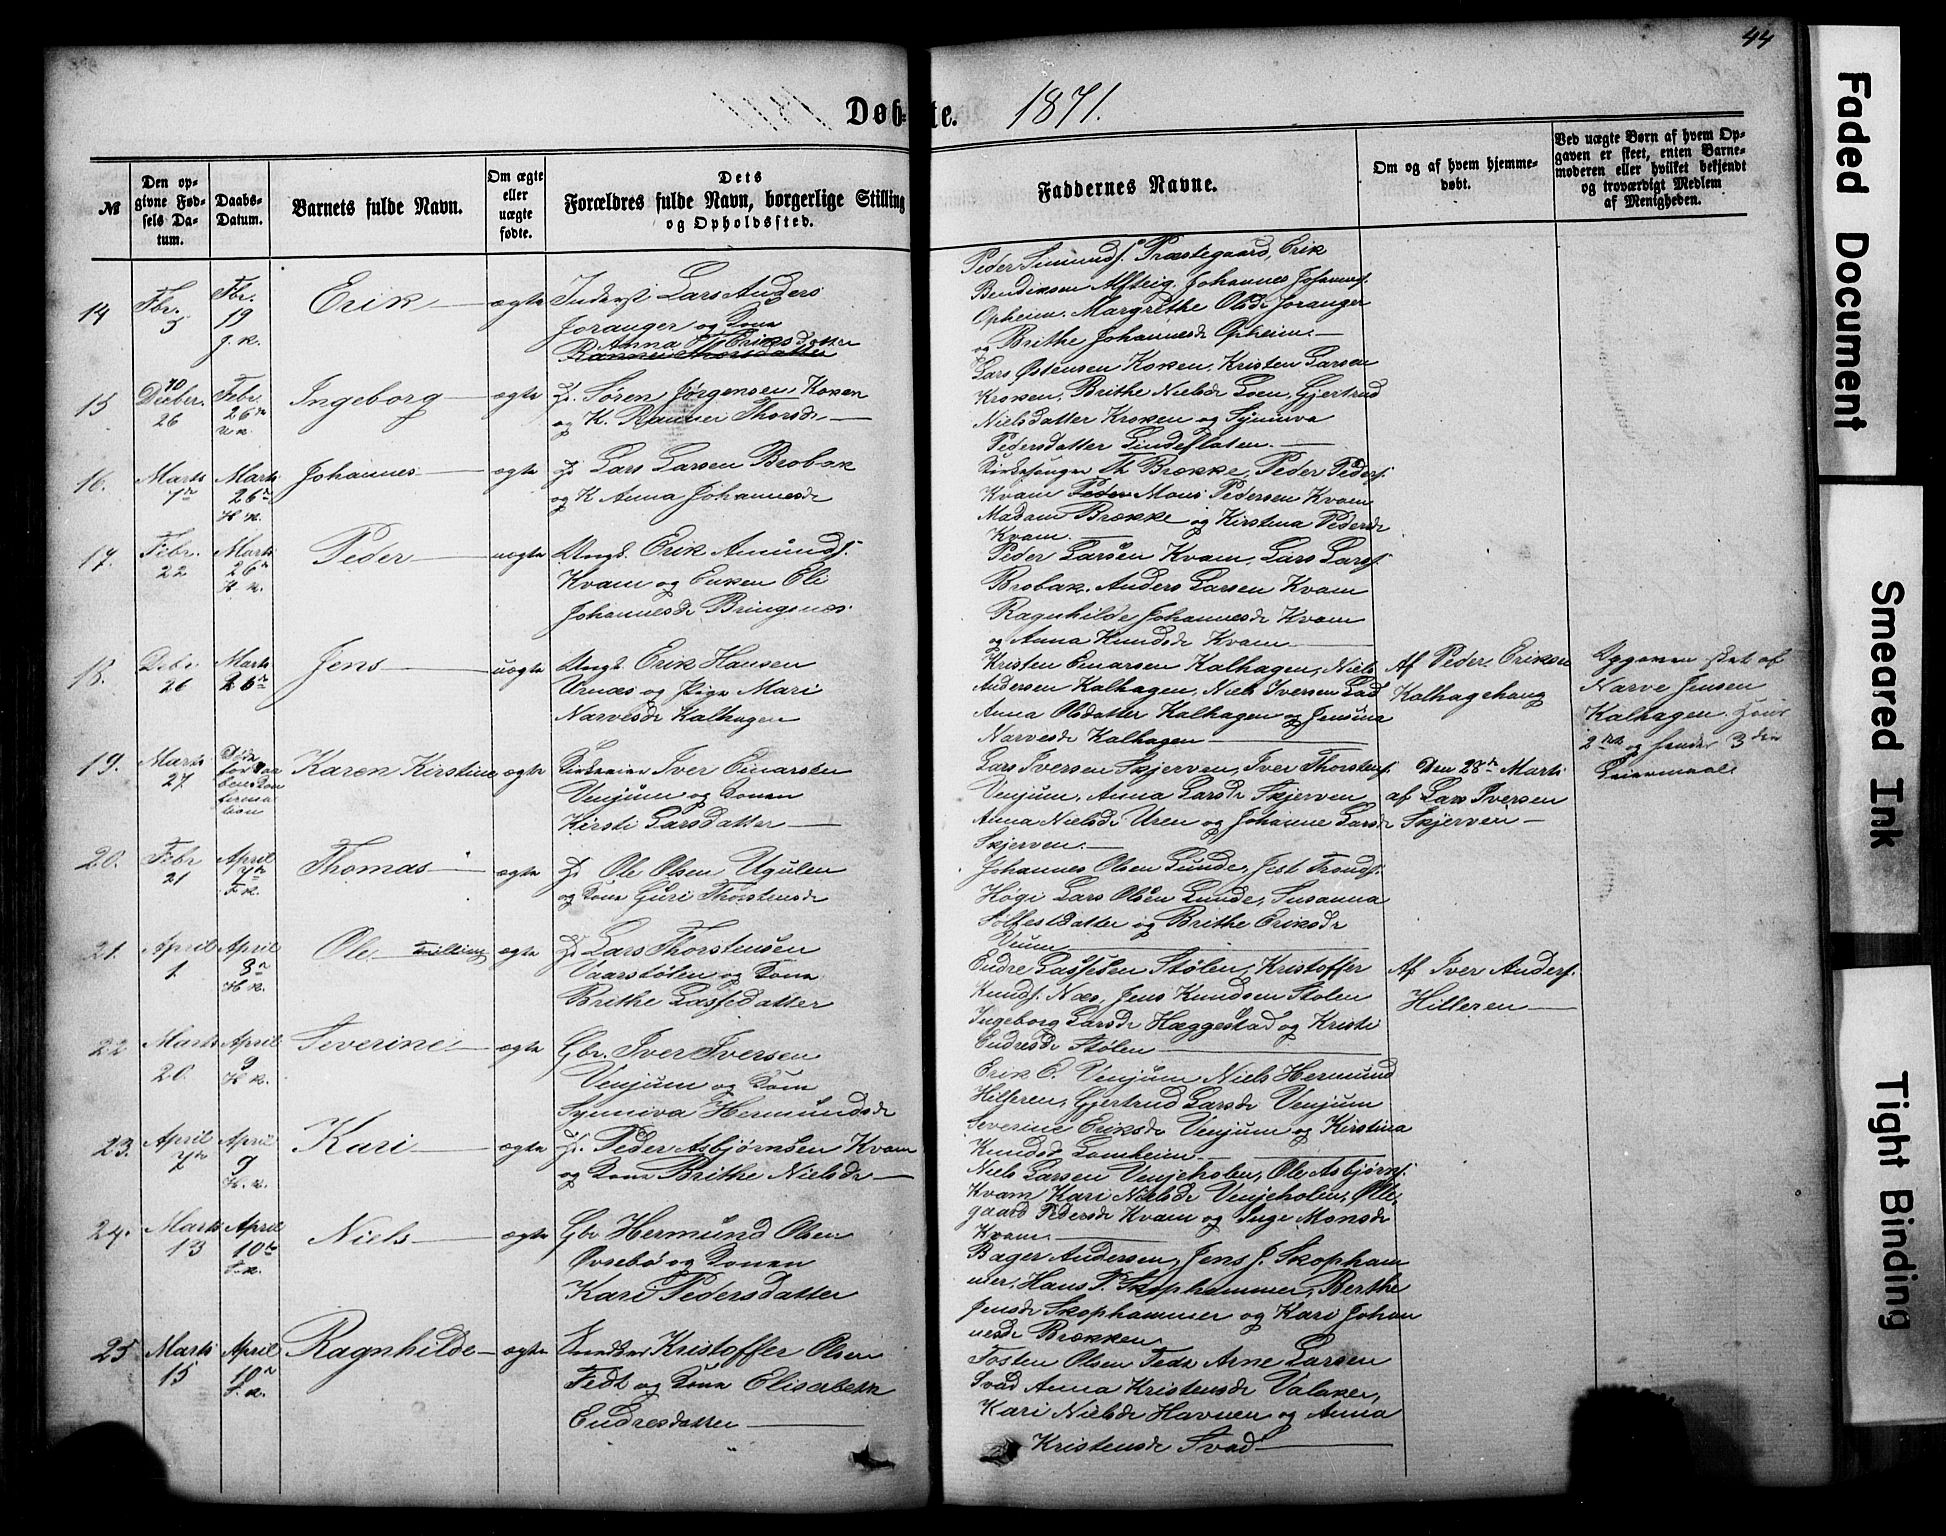 44
Døbte. 1871.
№
Den opgivne Fødsels Datum.
Daabs-Datum.
Barnets fulde Navn.
Om ægte eller uægte fødte.
Dets Forældres fulde Navn, borgerlige Stilling og Opholdssted.
Faddernes Navne.
Om og af hvem hjemmedøbt.
Ved uægte Børn af hvem Opgaven er skeet, enten Barnemoderen eller hvilket bekjendt og troværdigt Medlem af Menigheden.
14 Fbr. 5 Fbr. 19 Erik ægte
Lars Anders
Joranger og Kone
Anna Eriksdatter
Peder Simunds. Præstegaard, Erik
Bendiksen Alsteig, Johannes Johannes.
Opheim. Margrethe Olsdr Joranger
og Brithe Johannesdr Opheim.
15 Dcber. 26 Febr. 26de Ingeborg ægte
Søren Jørgensen Koxen
og K. Thorsdr
Lars Østensen Koxen, Kristen Larsen
Kroken, Brithe Nielsdr Loen, Gjertrud
Nielsdatter Kroken og Synneva
Pedersdatter Lindeflaten.
16. Marts 7de Marts 26de H. k. Johannes ægte
Lars Larsen Brobak
og K Anna Johannesdr
Kirkesanger Th Brække, Peder Peders.
Kvam Mons Pedersen Kvam
Madam Brække og Kirstina Pedersdr
Kvam.
17. Febr. 22 Marts 26de H. k. Peder uægte
Ungk. Erik Amunds.
Kvam og Enken Eli
Johannesdr Bringenæs.
Peder Larsen Kvam, Lars Lars.
Brobak. Anders Larsen Kvam
Ragnhilde Johannesdr Kvam
og Anna Knudsdr Kvam
18. Debr 26 Marts 26de Jens uægte
Ungk. Erik Hansen
Ornæs og Pige Mari
Narvesdr Kalhagen
Kristen Enarsen Kalhagen, Niels
Andersen Kalhagen, Niels Iversen
Anna Olsdatter Kalhagen og Jensina
Narvesdr Kalhagen
Af Peder Eriksen
Kalhagehaug
Opgaven skeet af
Narve Jensen
Kalhagen. Hans
2det og hendes 3die
Leiermaal
19. Marts 27 Døde for Daabens Konfirmation Karen Kirstine ægte
Iver Einarsen
Venjum og Konen
Kirsti Larsdatter
Lars Iversen Skjerven, Iver Thorstens.
Venjum, Anna Larsdr Skjerven
Anna Nielsdr Uren og Johanne Larsdr
Skjerven.
Den 28de Marts
af Lars Iversen
Skjerven
20. Febr 21 April 7de F. k. Thomas ægte
Ole Olsen Ugulen
og Kone Guri Thorstensdr
Johannes Olsen Lunde, Tronds.
Høgi Lars Olsen Lunde, Susanna
Datter og Brithe Eriksdr
21. April 1. April 9de H k. Ole Trilling ægte
Lars Thorstensen
Vaarstølen og Kone
Brithe Lassedatter
Endre Lassesen Stølen, Kristoffer
Knuds. Næs, Jens Knudsen Stolen
Ingeborg Larsdr Hæggestad og Kristi
Endresdr Stølen
Af Iver Anders.
Hilleren
22 Marts 20. April 9 H k. Severine ægte
Gbr. Iver Iversen
Venjum og Kone
Synneva Hermundsdr
Erik E. Venjum, Niels Hermund
Gjertrud Larsdr Venjum
Severine Eriksdr Venjum og Kirstina
Knudsd Lomheim
23. April April 9 H. k. Kari ægte
Peder Asbjørnsen Kvam
og Kone Brithe Nielsdr
Niels Larsen Venjeholen, Ole Asbjørns.
Kvam, Kari Nielsdr Venjeholen, Ollegaard Pedersdr Kvam og Inge Monsdr
Kvam
24. Marts 13 April 10de Niels ægte
Gbr Hermund Olsen
Øvsebø og Konen
Kari Pedersdatter
Bager Andersen, Jens J. Skophammer, Hans P. Skophammer, Berthe
Jensdr Skophammer og Kari Johannesdr Brækken
25 Marts 15 April 10de Ragnhilde ægte
Kristoffer Olsen
Fedt og Kone Elisabeth
Endresdatter
Tosten Olsen Arne Larsen
Svad Anna Kristensdr Valaker,
Kari Nielsdr Havnen og Anna
Kristensdr Svad
Faded Document
Smeared Ink
Tight Binding